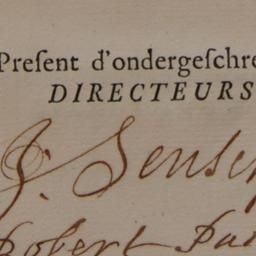 Preſent d'ondergeſchre
DIRECTEURS
J. Senſe
Robert Pa